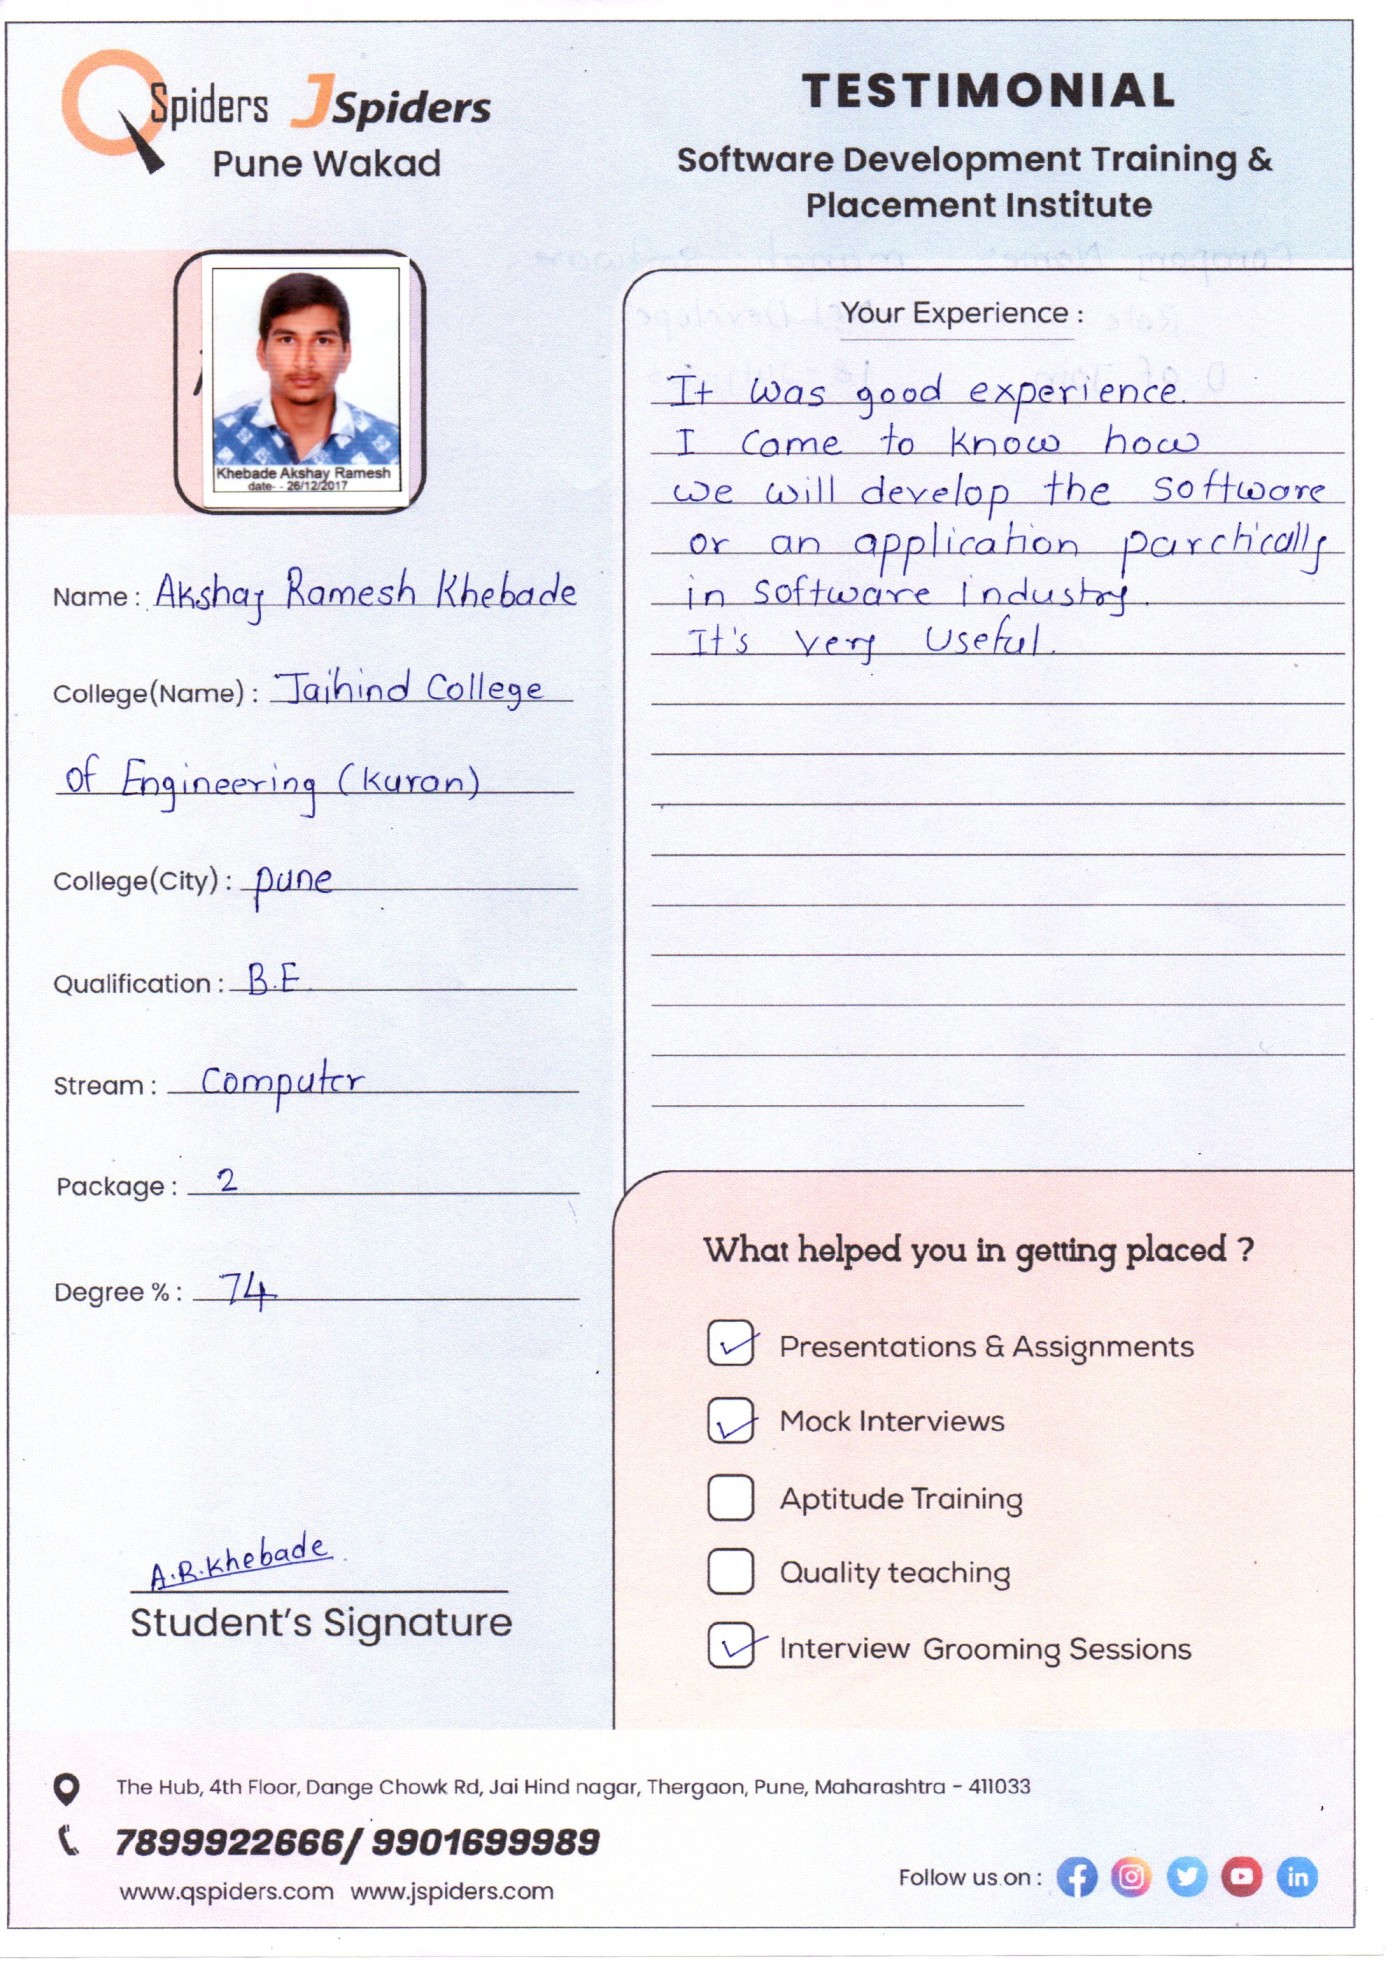 QSpiders JSpiders
Pune Wakad
TESTIMONIAL
Software Development Training &
Placement Institute
Khebade Akshay Ramesh
date- - 26/12/2017
Name : Akshay Ramesh Khebade
College(Name) : Jaihind College
of Engineering (Kuran)
College(City) : pune
Qualification : B.E
Stream : Computer
Package : 2
Degree % : 74
A.R.Khebade
Student's Signature
Your Experience :
It was good experience.
I came to know how
we will develop the software
or an application parctically
in software industry.
It's very useful.
What helped you in getting placed ?
Presentations & Assignments
Mock Interviews
Aptitude Training
Quality teaching
Interview Grooming Sessions
The Hub, 4th Floor, Dange Chowk Rd, Jai Hind nagar, Thergaon, Pune, Maharashtra - 411033
7899922666/ 9901699989
www.qspiders.com www.jspiders.com
Follow us on :